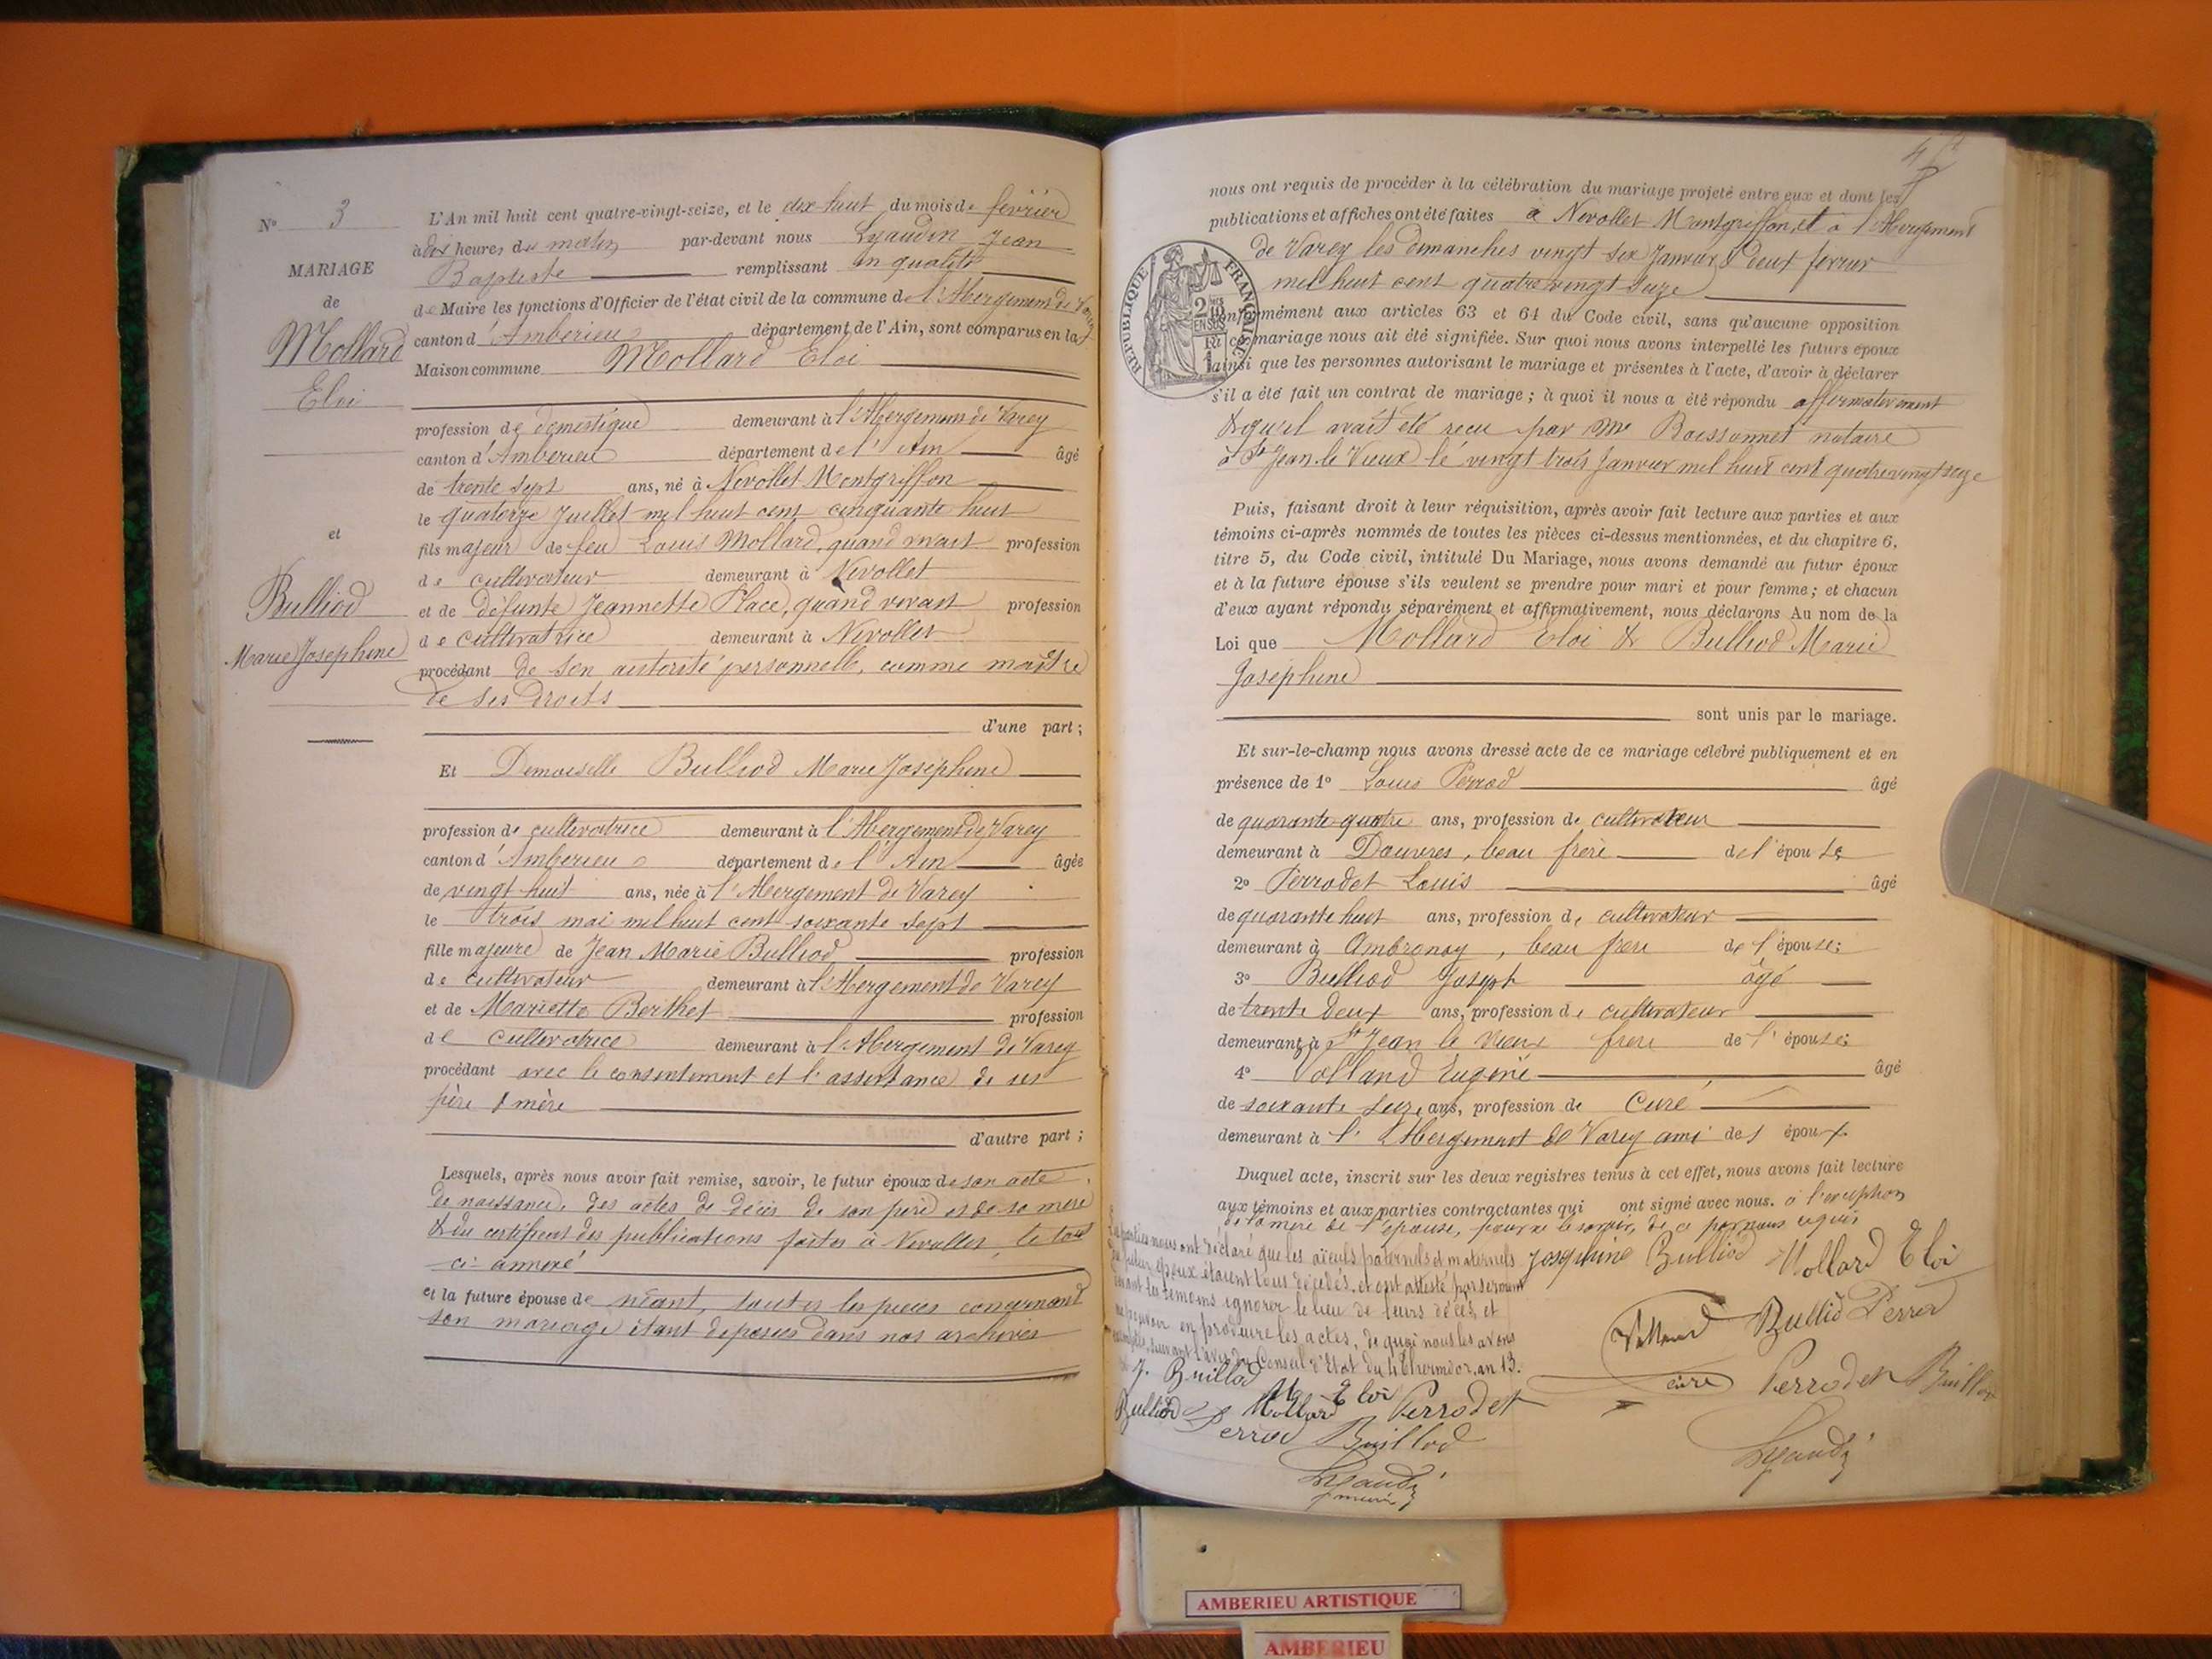 N° 3
MARIAGE
de
Mollard
Eloi
et
Bulliod
Marie Josephine
L'An mil huit cent quatre-vingt-seize, et le dix huit du mois de février
à dix heures du matin par-devant nous Lyaudin Jean
Baptiste remplissant en qualité
de Maire les fonctions d'Officier de l'état civil de la commune de l'Abergement de Varey
canton d'Ambérieu département de l'Ain, sont comparus en la
Maison commune Mollard Eloi
profession de domestique demeurant à l'Abergement de Varey
canton d'Amberieu département de l'Ain âgé
de trente sept ans, né à Nivollet Montgriffon
le quatorze Juillet mil huit cent cinquante huit
fils majeur de feu Louis Mollard, quand vivait profession
de cultivateur demeurant à Nivollet
et de défunte Jeannette Place, quand vivait profession
de cultivatrice demeurant à Nivollet
procédant de son autorité personnelle, comme maître
de ses droits
d'une part;
Et Demoiselle Bulliod Marie Josephine
profession de cultivatrice demeurant à l'Abergement de Varey
canton d'Amberieu département de l'Ain âgée
de vingt huit ans, née à l'Abergement de Varey
le trois mai mil huit cent soixante sept
fille majeure de Jean Marie Bulliod profession
de cultivateur demeurant à l'Abergement de Varey
et de Mariette Berthet profession
de cultivatrice demeurant à l'Abergement de Varey
procédant avec le consentement et l'assistance de ses
père & mère
d'autre part;
Lesquels, après nous avoir fait remise, savoir, le futur époux de son acte
de naissance, des actes de décès de son père et de sa mère
& du certificat des publications faites à Nivollet, le tout
ci-annexé
et la future épouse de néant, toutes les pièces concernant
son mariage étant déposées dans nos archives
nous ont requis de procéder à la célébration du mariage projeté entre eux et dont les
publications et affiches ont été faites à Nivollet Montgriffon, et à l'Abergement
de Varey les dimanches vingt six Janvier & deux février
mil huit cent quatre vingt seize
RÉPUBLIQUE FRANÇAISE
conformément aux articles 63 et 64 du Code civil, sans qu'aucune opposition
ce mariage nous ait été signifiée. Sur quoi nous avons interpellé les futurs époux
ainsi que les personnes autorisant le mariage et présentes à l'acte, d'avoir à déclarer
s'il a été fait un contrat de mariage; à quoi il nous a été répondu affirmativement
& qu'il avait été recu par Me Boissonnet notaire
à St Jean le Vieux le vingt trois Janvier mil huit cent quatre vingt seize
Puis, faisant droit à leur réquisition, après avoir fait lecture aux parties et aux
témoins ci-après nommés de toutes les pièces ci-dessus mentionnées, et du chapitre 6,
titre 5, du Code civil, intitulé Du Mariage, nous avons demandé au futur époux
et à la future épouse s'ils veulent se prendre pour mari et pour femme; et chacun
d'eux ayant répondu séparément et affirmativement, nous déclarons Au nom de la
Loi que Mollard Eloi & Bulliod Marie
Josephine
sont unis par le mariage.
Et sur-le-champ nous avons dressé acte de ce mariage célébré publiquement et en
présence de 1° Louis Perrod âgé
de quarante quatre ans, profession de cultivateur
demeurant à Douvres, beau frère de l'épouse
2° Perrodet Louis âgé
de quarante huit ans, profession de cultivateur
demeurant à Ambronay, beau frere de l'épouse;
3° Bulliod Joseph âgé
de trente deux ans, profession de cultivateur
demeurant à St Jean le Vieux frere de l'épouse;
4° Volland Eugène âgé
de soixante seize ans, profession de Curé
demeurant à l'Abergement de Varey ami des époux
Duquel acte, inscrit sur les deux registres tenus à cet effet, nous avons fait lecture
aux témoins et aux parties contractantes qui ont signé avec nous. à l'exception
de la mère de l'épouse, pour ne le savoir, de ce par nous requis
Les parties nous ont déclaré que les aïeuls paternels et maternels
du futur époux étaient tous décédés, et ont attesté par serment
devant les témoins ignorer le lieu de leurs décès, et
ne pouvoir en produire les actes, de quoi nous les avons
suivant l'avis du Conseil d'Etat du 4 thermidor, an 13.
Josephine Bulliod Mollard Eloi
Volland Bulliod Perrod
curé Perrodet Buillod
Lyaudin
J. Buillod Mollard Eloi Perrodet
Bulliod Perrod Buillod
Lyaudin
AMBERIEU ARTISTIQUE
AMBERIEU